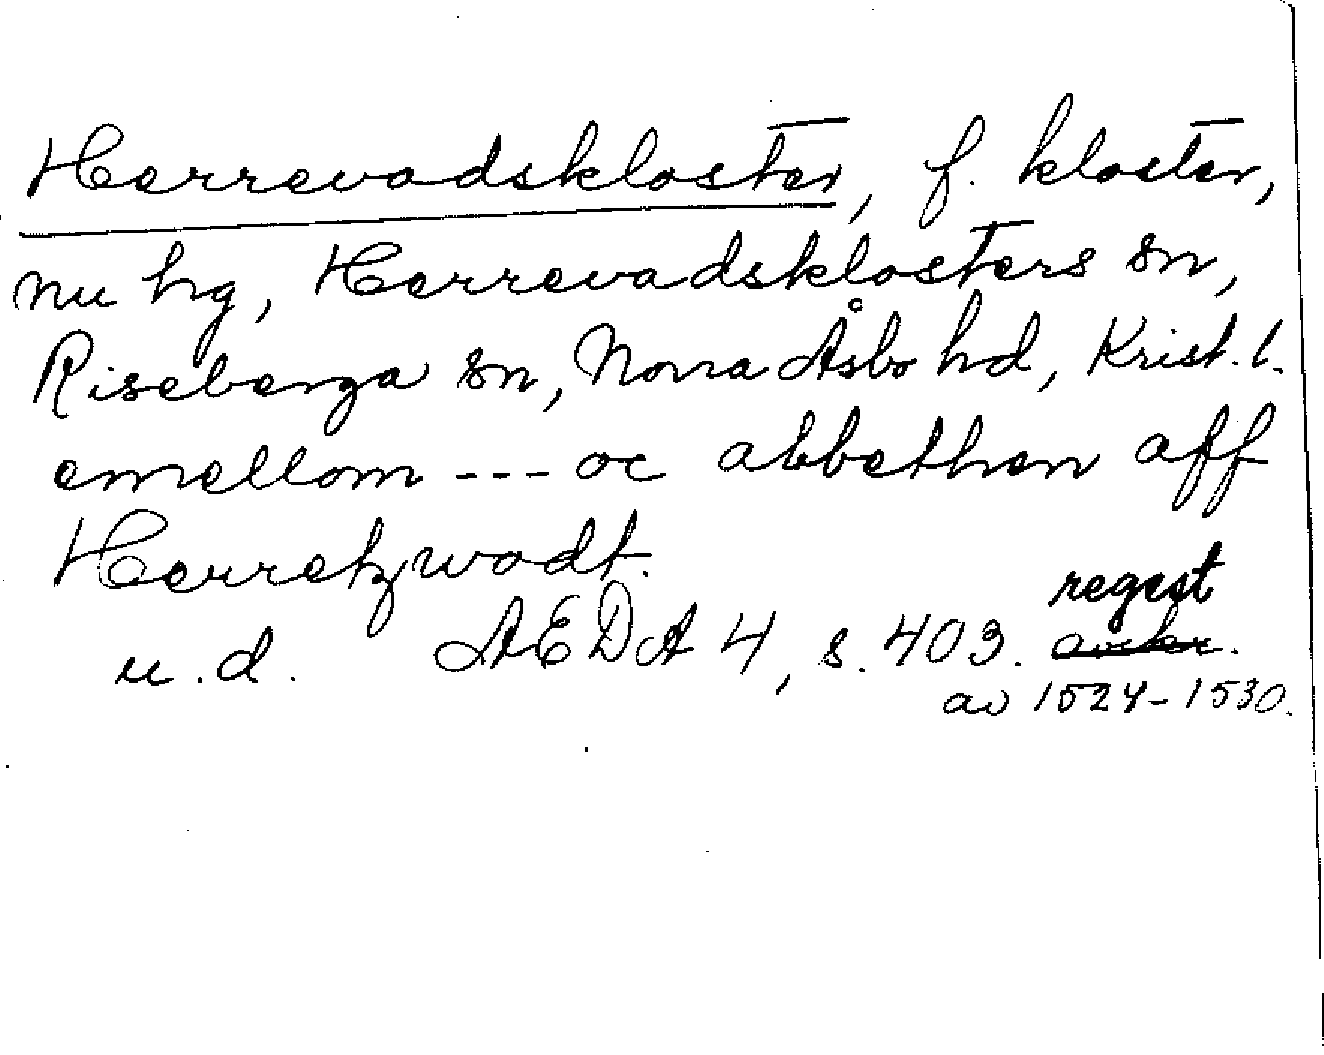 Herrevadskloster, f. kloster,
nu hg, Herrevadsklosters sn,
Riseberga sn, Norra Åsbo hd, Krist. l.
emellom --- oc abbethen aff
Herretzwadt.
regest
u. d. AEDA 4, s. 403.
av 1524-1530.